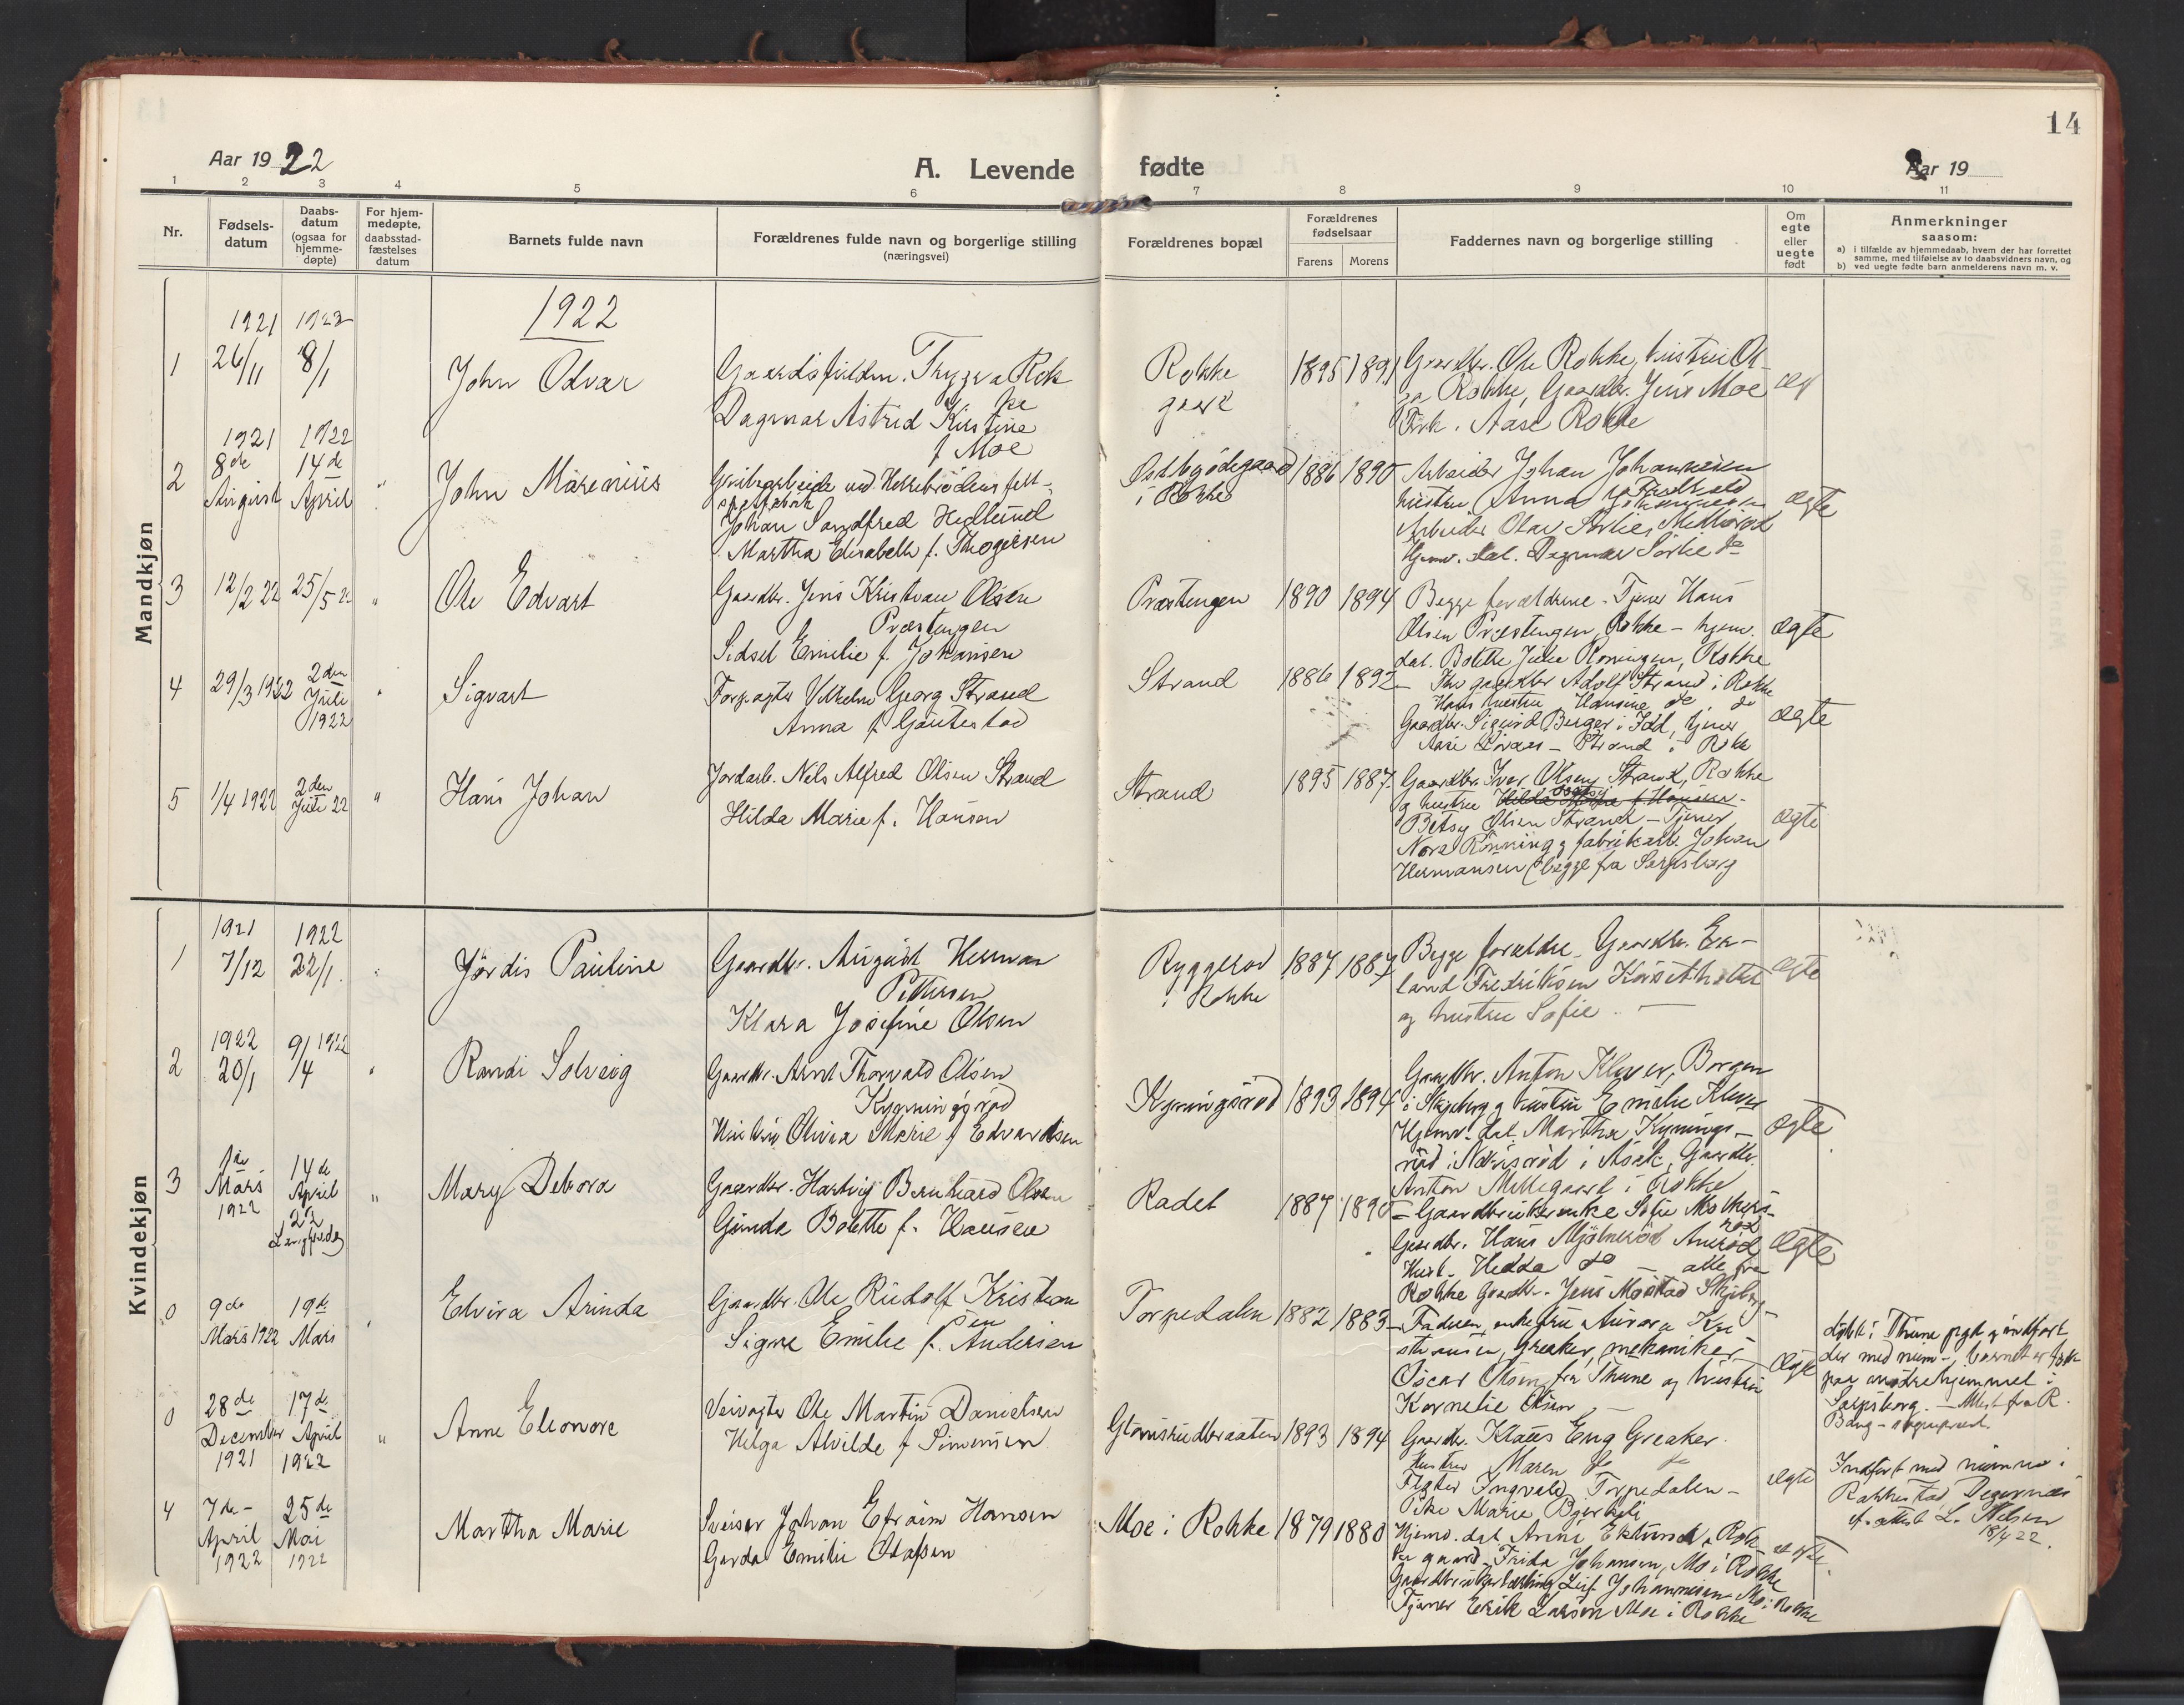 14
Aar 1922
A. Levende fødte
Aar 19
1 2 3 4 5 6 7 8 9 10 11
Nr.
Fødsels-
datum
Daabs-
datum
(ogsaa for
hjemme-
døpte)
For hjem-
medøpte,
daabsstad-
fæstelses
datum
Barnets fulde navn
Forældrenes fulde navn og borgerlige stilling
(næringsvei)
Forældrenes bopæl
Forældrenes
fødselsaar
Farens Morens
Faddernes navn og borgerlige stilling
Om
egte
eller
uegte
født
Anmerkninger
saasom:
a) i tilfælde av hjemmedaab, hvem der har forrettet
samme, med tilføielse av to daabsvidners navn, og
b) ved uegte fødte barn anmelderens navn m. v.
Mandkjøn
1922
1
1921
26/11
1922
8/1
John Odvar
Trygve Rokke
Dagmar Astrid Kirstine
f Moe
Rokke
gaard
1895 1891
Gaardbr. Ole Rokke, hustru Ol-
ga Rokke, Gaardbr. Jens Moe
Frk. Aase Rokke
2
1921
8de
August
1922
14de
April
"
John Marenius
Johan Sandfred Hedlund
Martha Elisabeth f. Thogersen
i Rokke
1886 1890
Arbeider Johan Johannesen
hustru Anna
Arbeider Olav Sørlie,
Hjemv. dat. Dagmar Sørlie do
ægte
3
12/2 22
25/5 22
"
Ole Edvart
Gaardbr. Jens Kristian Olsen
Præstengen
Sidsel Emilie f. Johansen
Præstengen
1890 1894
Begge forældrene. Tjener Hans
Olsen Præstengen, Rokke - hjem.
dat. Bolette Julie Roningen, Rokke
ægte
4
29/3 1922
2den
Juli
1922
"
Sigvart
Forpagter Vilhelm Georg Strand
Anna f Gautestad
Strand
1886 1892
gaardbr Adolf Strand i Rokke
Hans hustru Hansine do do
Gaardbr. Sigurd Berger i Idd, tjener
Strand i Rokke
ægte
5
1/4 1922
2den
Juli 22
"
Hans Johan
Jordarb. Nels Alfred Olsen Strand
Hilda Marie f. Hansen
Strand
1895 1887
Gaardbr. Iver Olsen Strand, Rokke
og hustru
Betsy Olsen Strand - Tjener
Nora Rönning og fabrikarb. Johan
Hermansen (begge fra Sarpsborg
ægte
Kvindekjøn
1
1921
7/12
1922
22/1
Jördis Pauline
Gaardbr. August Herman
Pettersen
Klara Josefine Olsen
Ryggerød
i Rokke
1887 1887
Begge forældre. Gaardbr. Er-
land Fredriksen
og hustru Sofie
ægte
2
1922
20/1
9/4 1922
"
Randi Solveig
Gaardbr. Arnt Thorvald Olsen
Kyningsrød
Hustru Olivia Marie f Edvardsen
Kyningsrød
1893 1894
Gaardbr. Anton Klever, Borgen
i Skjeberg og hustru Emilie Klever
Hjemv. dat. Martha Kynings-
rød i Asak, Gaardbr.
Anton Mellegaard i Rokke
ægte
3
1de
Mars
1922
14de
April
22
Langfredag
"
Mary Debora
Gaardbr. Hartvig Bernhard Olsen
Gunda Bolette f. Hansen
Rødet
1887 1890
Gaardbrukerenke Sofie
Gaardbr. Hans
Hust. Hedda do - alle fra
Rokke Gaardbr. Jens Moestad Skjeberg
ægte
0
9de
Mars 1922
19de
Mars
Edvira Arinda
Gaardbr. Ole Rudolf Kristian
sen
Signe Emilie f. Andersen
Torpedalen
1882 1883
Faderen, enkefru Aurora Kri-
stiansen, Greaker, mekaniker
Oscar Olsen fra Thune og hustru
Kornelie Olsen
ægte
døbt i Thune pgd og indført
der med num-, barnet er født
paa mødrehjemmet i
Sarpsborg. - Attest fra R.
Bang - sogneprest.
0
28de
December
1921
17de
April
1922
"
Anne Eleonore
Veivogter Ole Martin Danielsen
Helga Alvilde f Simensen
Glomsrudbraaten
1893 1894
Gaardbr. Klaus Eng Greaker
hustru Maren do do
Ingvald Torpedalen -
Pike Marie Bjerkeli
ægte
Indført med nummer i
Rakkestad, Degernes
f. attest L. Nilsen
18/4 22.
4
7de -
April
1922
25de
Mai
1922
Martha Marie
Sveiser Johan Efraim Hansen
Gerda Emilie Olafsen
Moe i Rokke
1879 1880
Hjemv. dat Anna Eklund, Rok-
ke gaard. Frida Johansen, Mo i Rokke
Leif Johannesen Mo i Rokke
Tjener Erik Larson Moe i Rokke
ægte